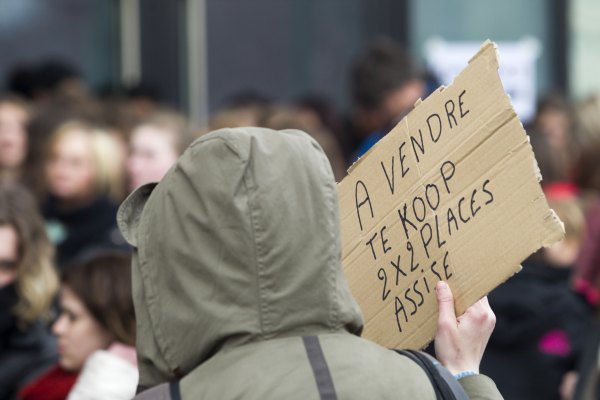 A VENDRE
TE KOOP
2X2PLACES
ASSISE